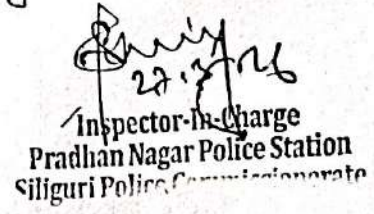 27.3.26
Inspector-In-Charge
Pradhan Nagar Police Station
Siliguri Police Commissionerate